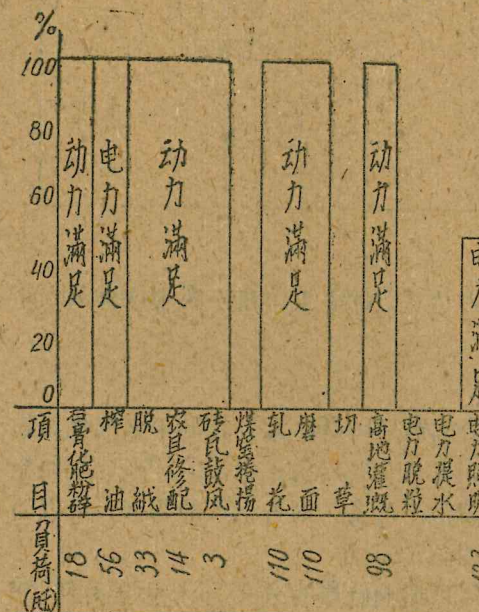 %
100
80
60
40
20
0
动力滿足
电力滿足
动力滿足
动力滿足
动力滿足
項目
石膏化肥粉碎
榨油
脱絨
农具修配
砖瓦鼓风
煤窑捲揚
轧花
磨面
切草
高地灌溉
电力脱粒
电力提水
电力照明
負荷
18
56
33
14
3
110
110
98